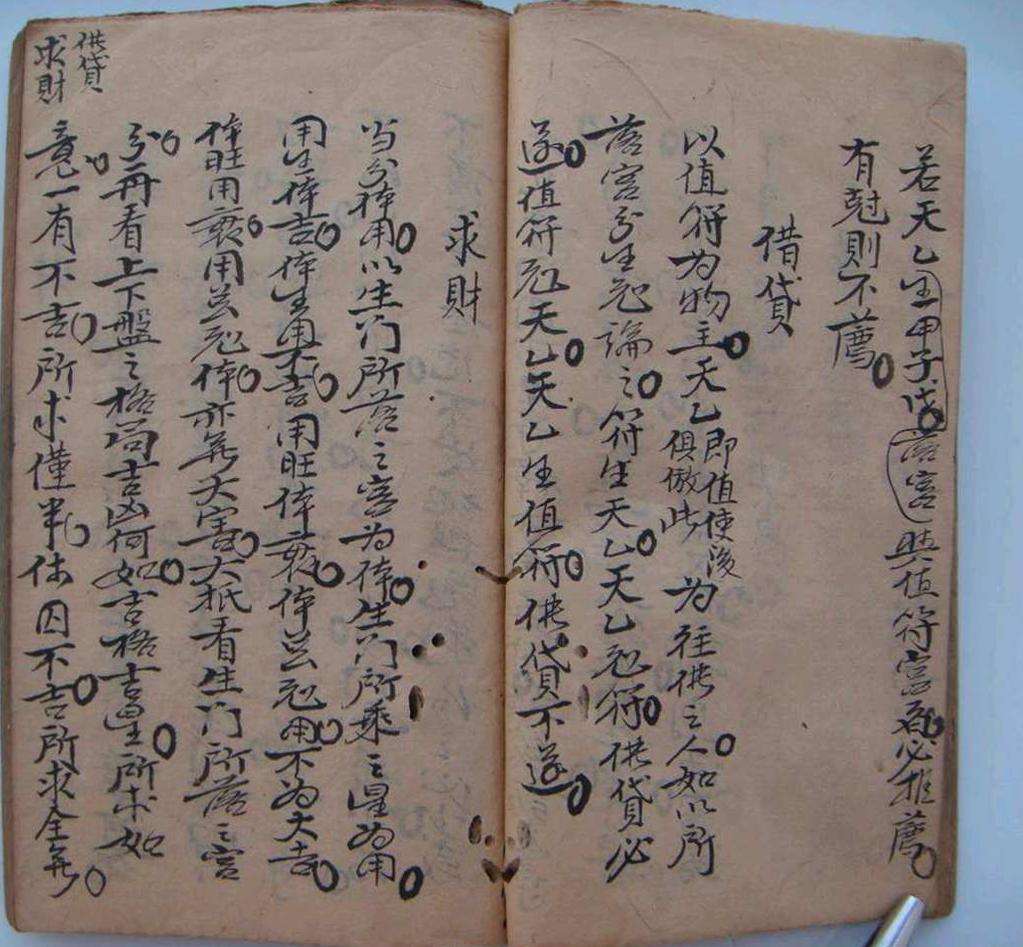 若天乙生甲子戊落宮與值符宮為必推薦
有尅則不薦
借貸
以值符為物主天乙即值使後俱倣此為往供之人如以所
落宮分生尅論之符生天乙天乙尅符供貸必
遂值符尅天乙天乙生值符供貸不遂
求財
当分体用以生门所落之宮為体生门所乘之星為用
用生体吉体生用不吉用旺体衰体並尅用不為大吉
体旺用衰用並尅体亦無大害大抵看生门所落之宮
分再看上下盤之格局吉凶何如吉格吉星所求如
意一有不吉所求僅半休囚不吉所求全無
供貸
求財